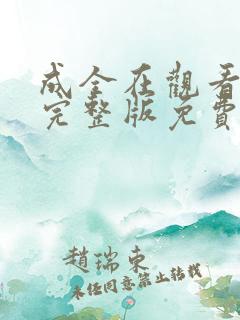 成全在觀看
完整版免費
趙瑞東
未经同意禁止转载